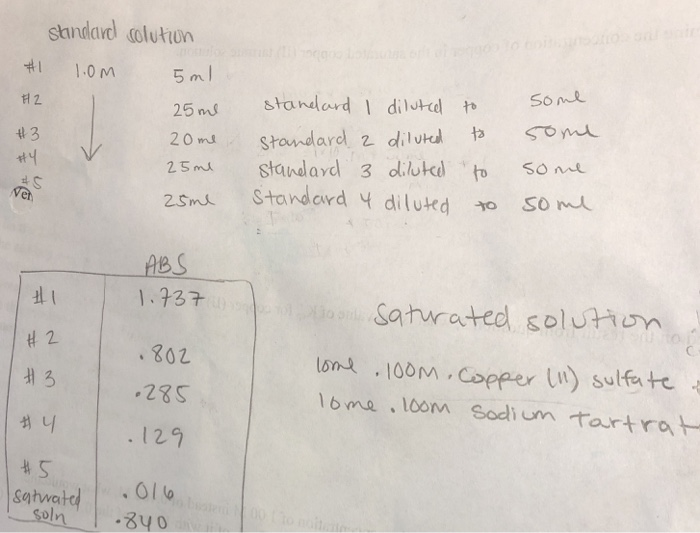 standard solution
#1 1.0M 5ml
#2 25ml standard 1 diluted to 50ml
#3 20ml standard 2 diluted to 50ml
#4 25ml standard 3 diluted to 50ml
#5 25ml Standard 4 diluted to 50ml
ABS
#1 1.737
#2 .802
#3 .285
#4 .129
#5 .016
saturated soln .840
saturated solution
10ml .100M. Copper (II) sulfate
10ml .100m sodium tartrat